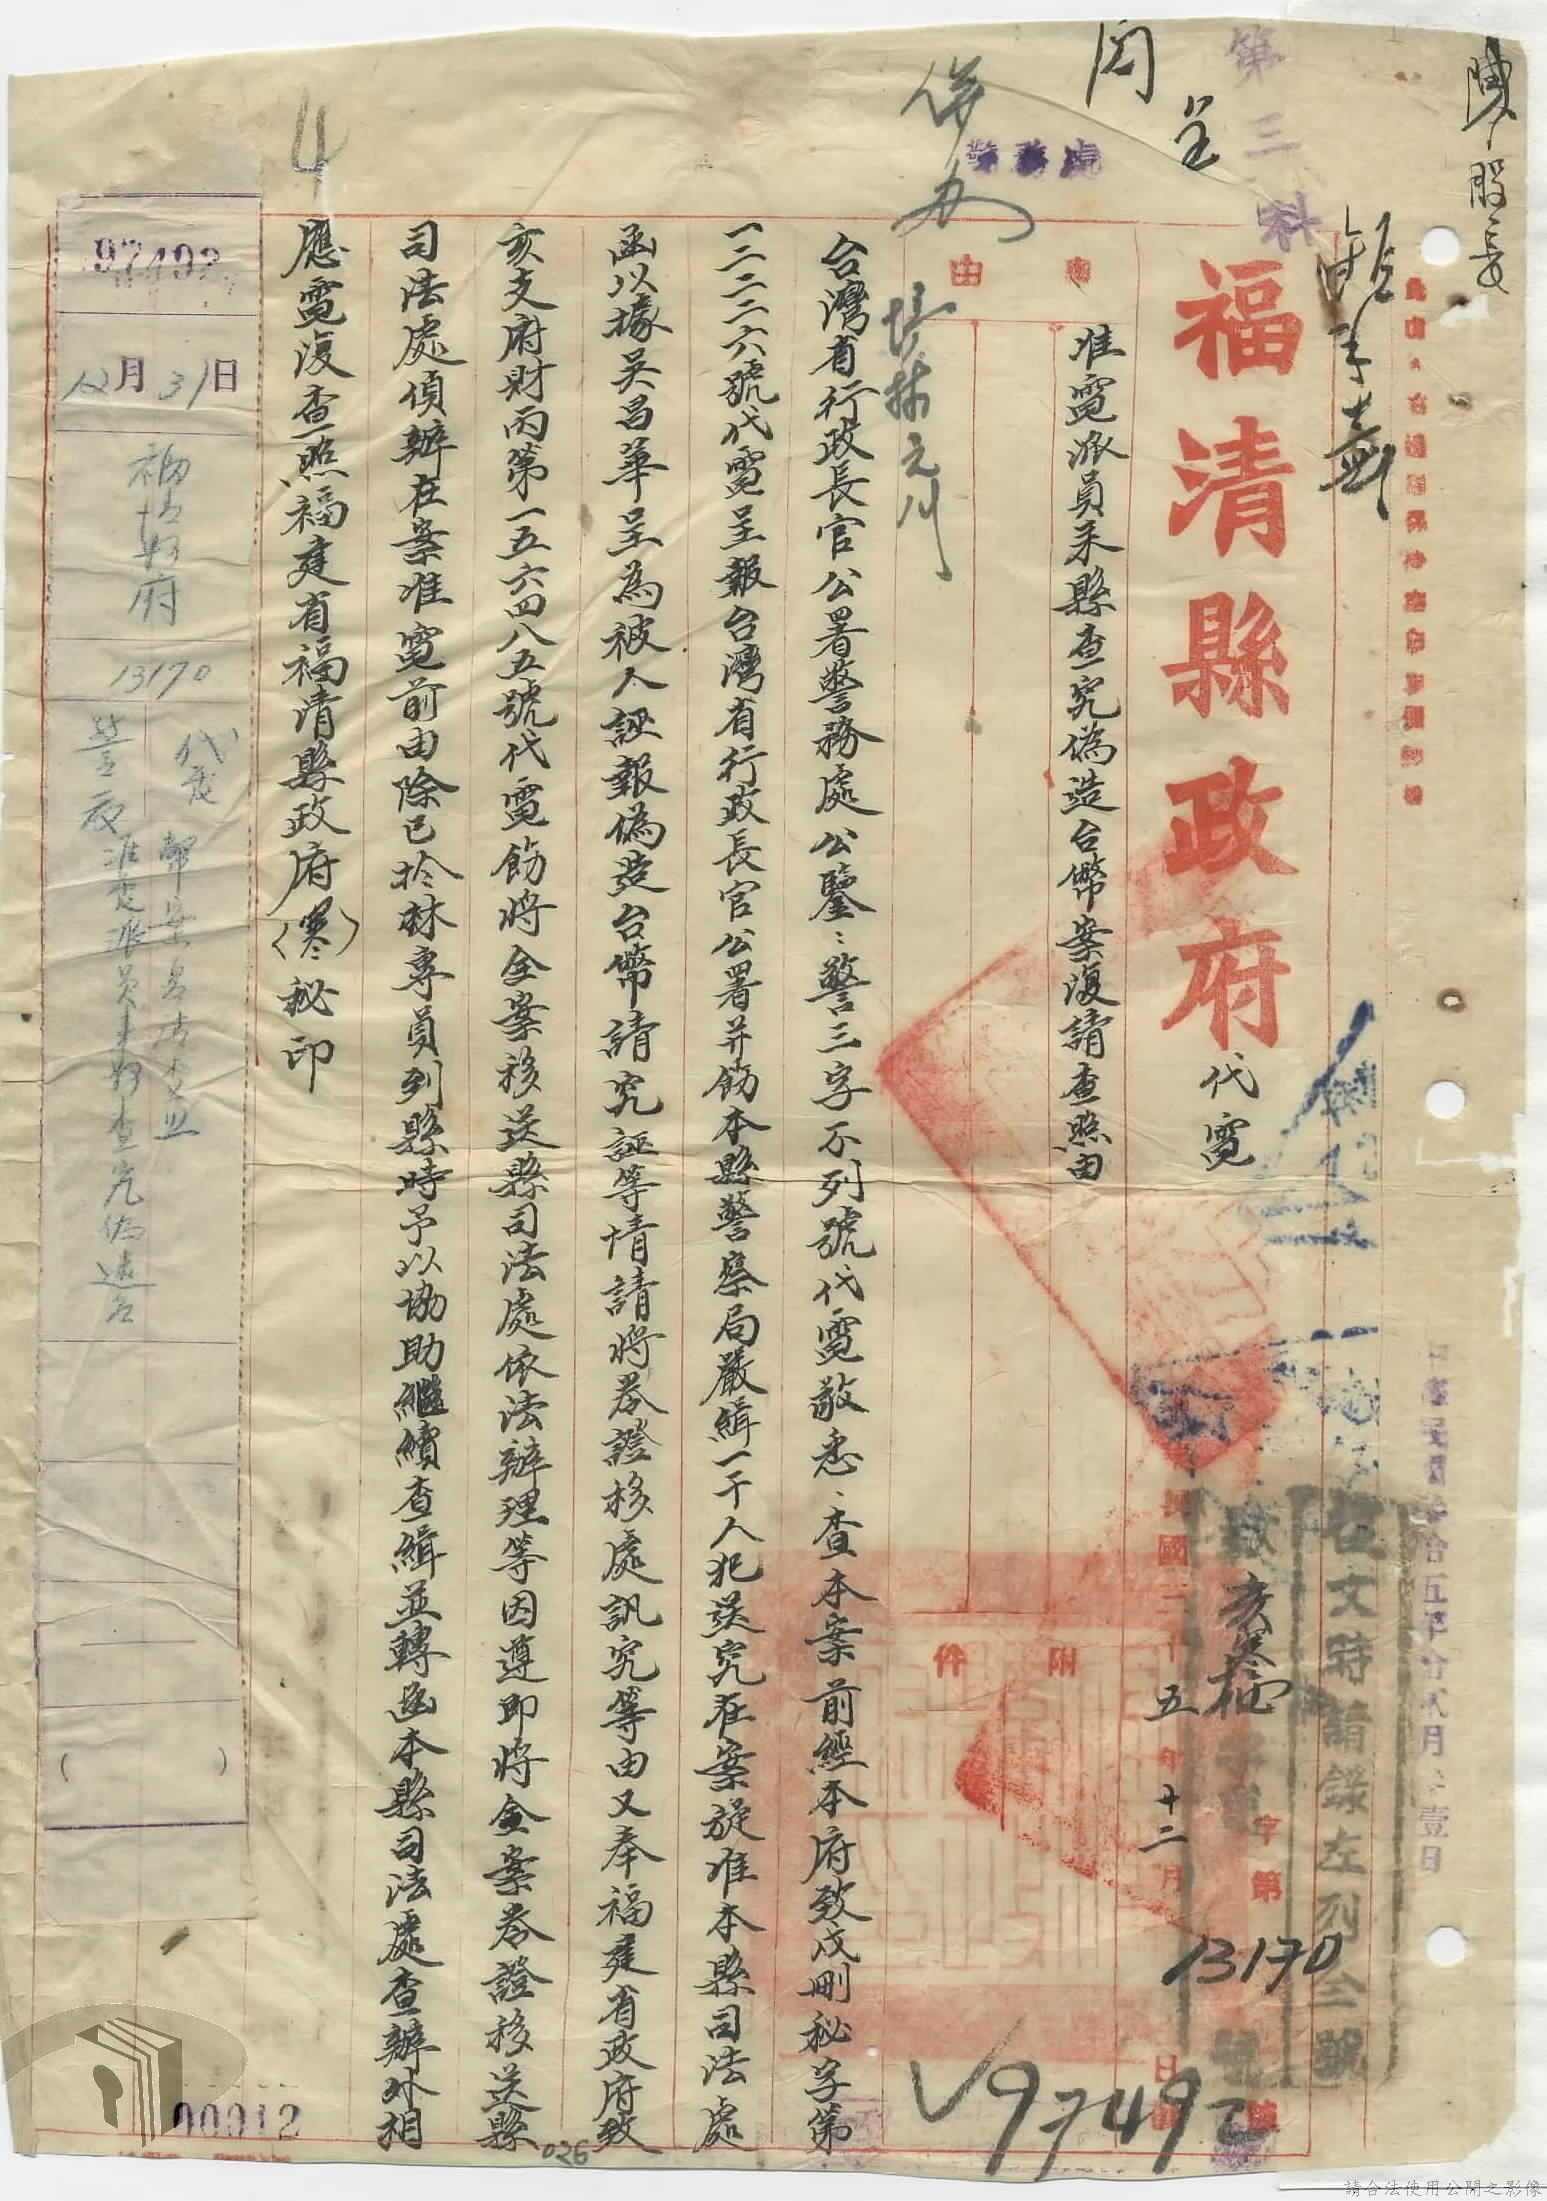 陳股長
第三科
閱
呈
併办
警務處
福清縣政府代電
事由
准電派員來縣查究偽造台幣案復請查照由
附件
民國三十五年十二月
亥寒
字第13170號
復文時請錄左列全號
97492
台灣省行政長官公署警務處公鑒：警三字不列號代電敬悉、查本案前經本府致戌刪秘字第
一二二二六號代電呈報台灣省行政長官公署并飭本縣警察局嚴緝一干人犯送究在案旋准本縣司法處
函以據吳昌華呈為被人誣報偽造台幣請究誣等情請將卷證移處訊究等由又奉福建省政府致
亥支府財丙第一五六四八五號代電飭將全案移送縣司法處依法辦理等因遵即將全案卷證移送縣
司法處偵辦在案准電前由除已於林專員列縣時予以協助繼續查緝並轉函本縣司法處查辦外相
應電復查照福建省福清縣政府（寒）秘印
4
97492
12月31日
福清縣府
13170
代電
准電派員來縣查究偽造台
00012
026
請合法使用公開之影像